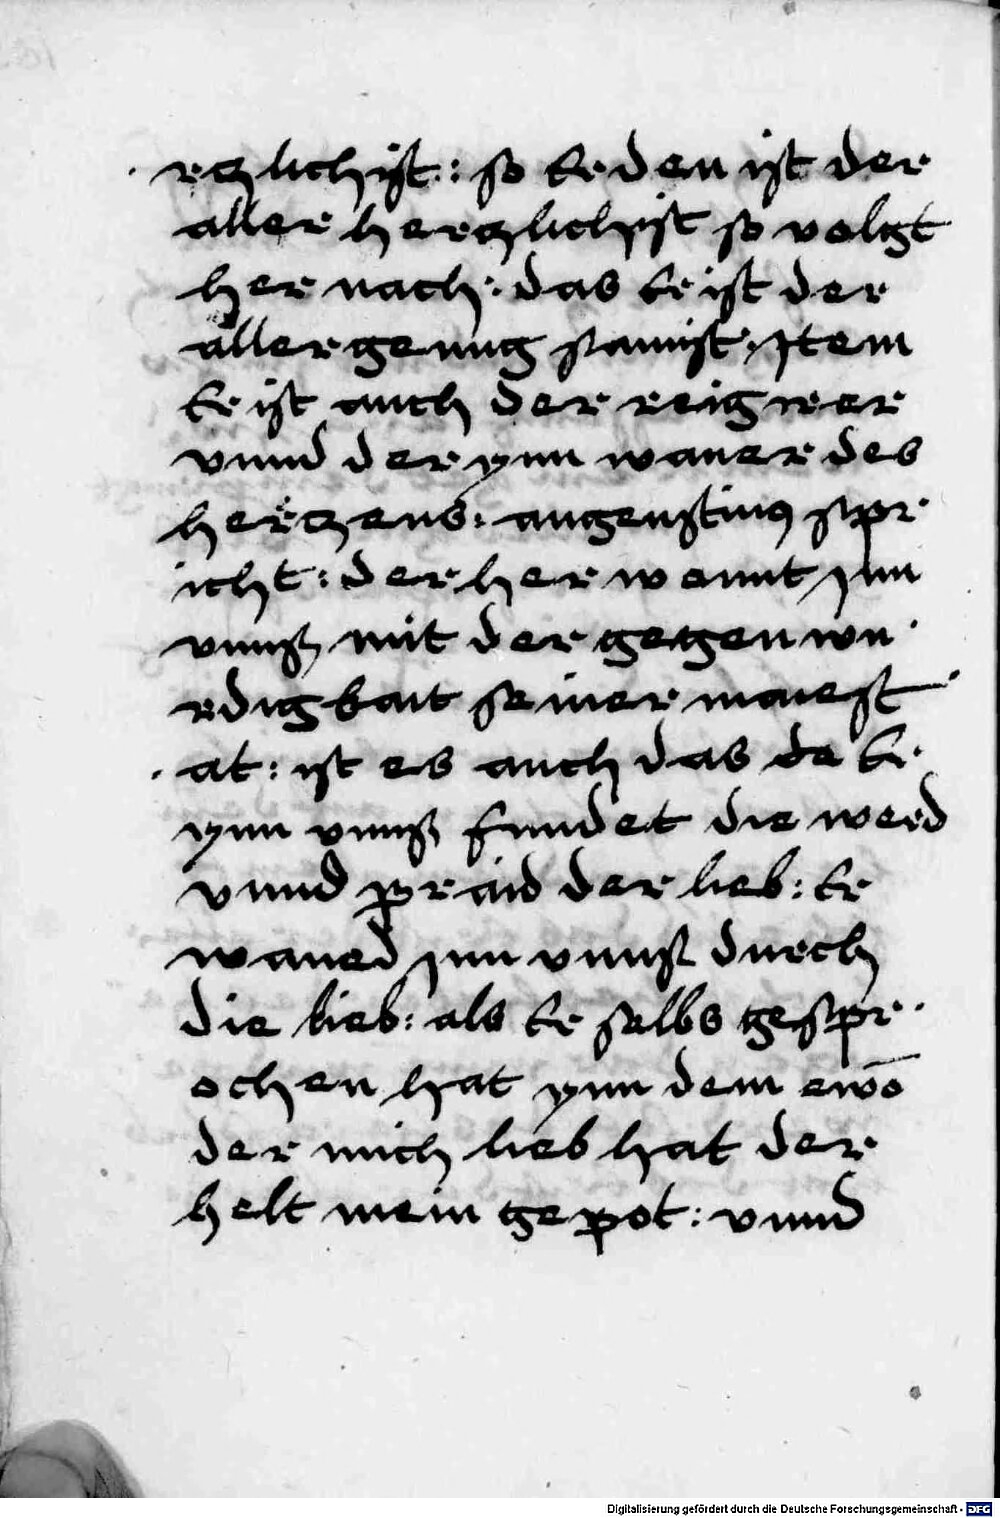 rczlichist: so Er den ist der
aller herczlichist so volgt
her nach: das Er ist der
allergenugsamist. Item
Er ist auch der reigirer
vnnd der ynn waner des
herczens: augenstinus spr
icht: der her wonnt jnn
vnnß mit der gegenwu
rdigkait seiner maiest
at: ist es auch das Er
ynn vnnß findet die werd
vnnd praid der lieb: Er
waned jnn vnnß durch
die lieb: als Er selbs gespr
ochen hat ynn dem ewō
der mich lieb hat der
helt mein gepot: vnnd
Digitalisierung gefördert durch die Deutsche Forschungsgemeinschaft - DFG